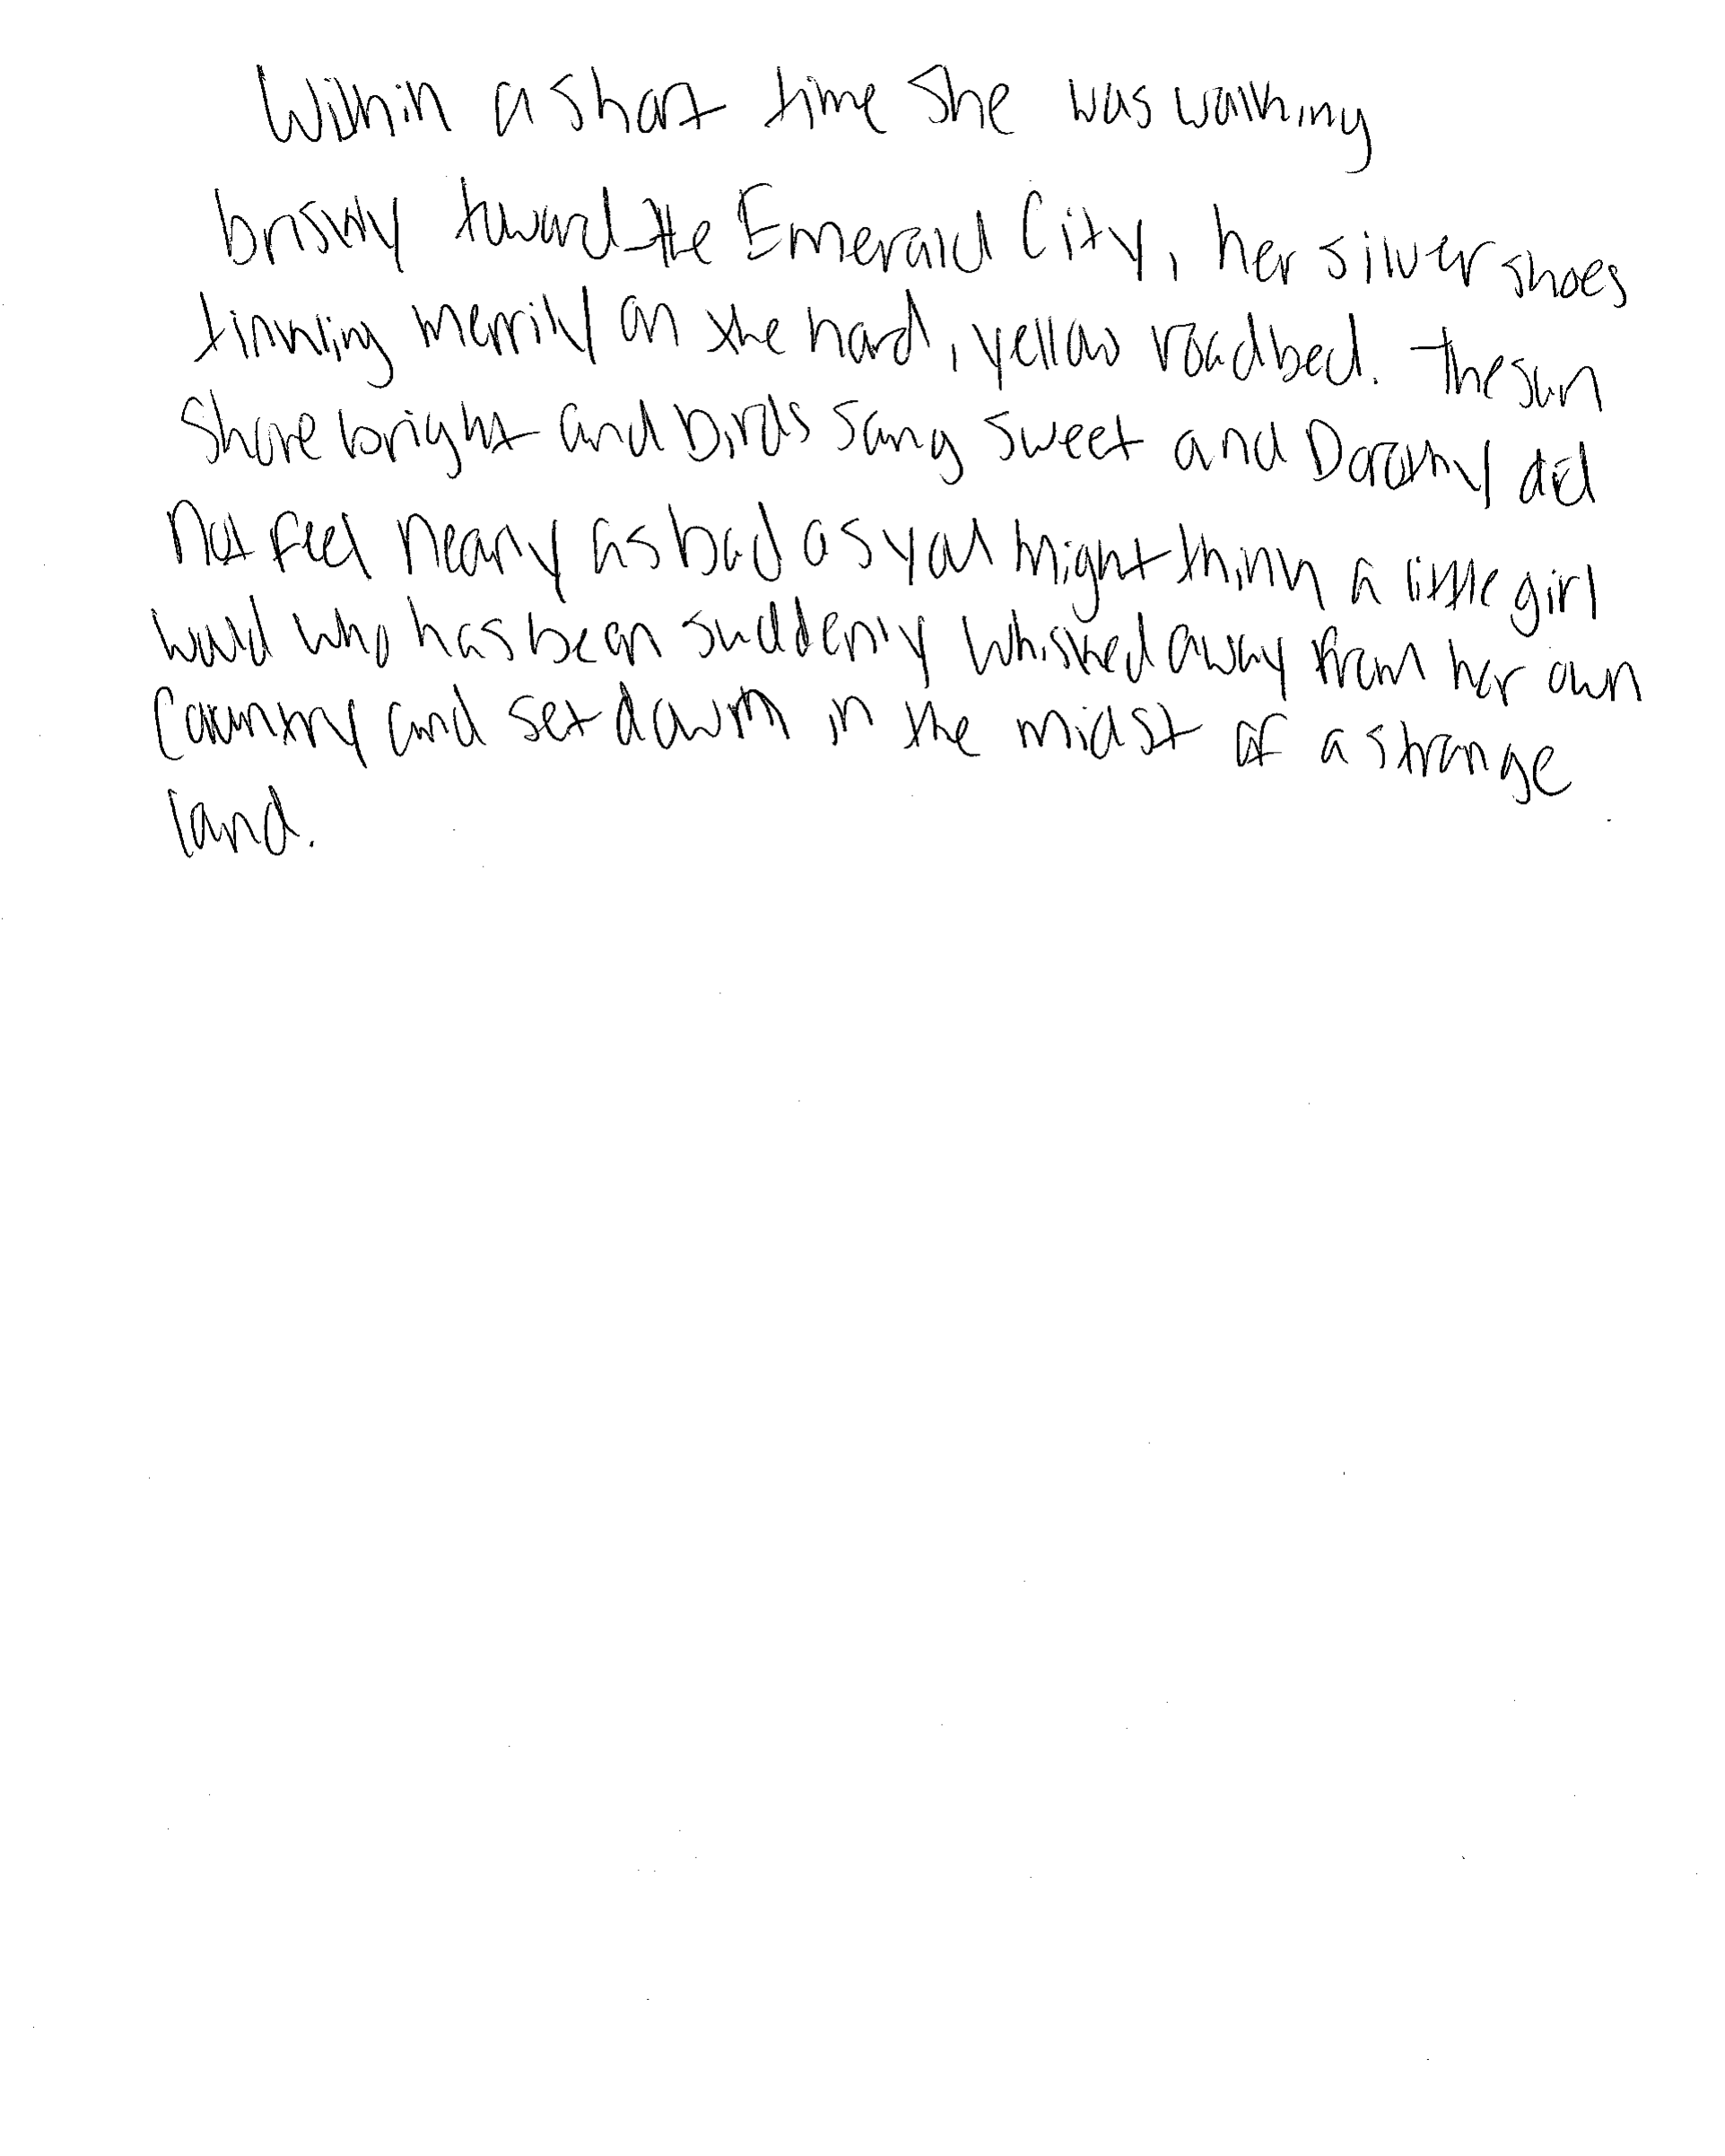 Within a short time she was walking
briskly toward the Emerald City, her silver shoes
tinkling merrily on the hard, yellow roadbed. The sun
shone bright and birds sang sweet and Dorothy did
not feel nearly as bad as you might think a little girl
would who has been suddenly whisked away from her own
country and set down in the midst of a strange
land.